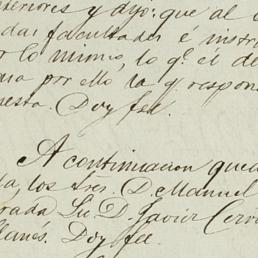 teriores y dijo: que al c
das facultades e instru
or lo mismo, lo q.e el de
para por ello la q respon
uesta. Doy fee.
A continuacion que
a, los Sres. D. Manuel
rada Lu D. Javier Cerv
llanés. Doy fee.